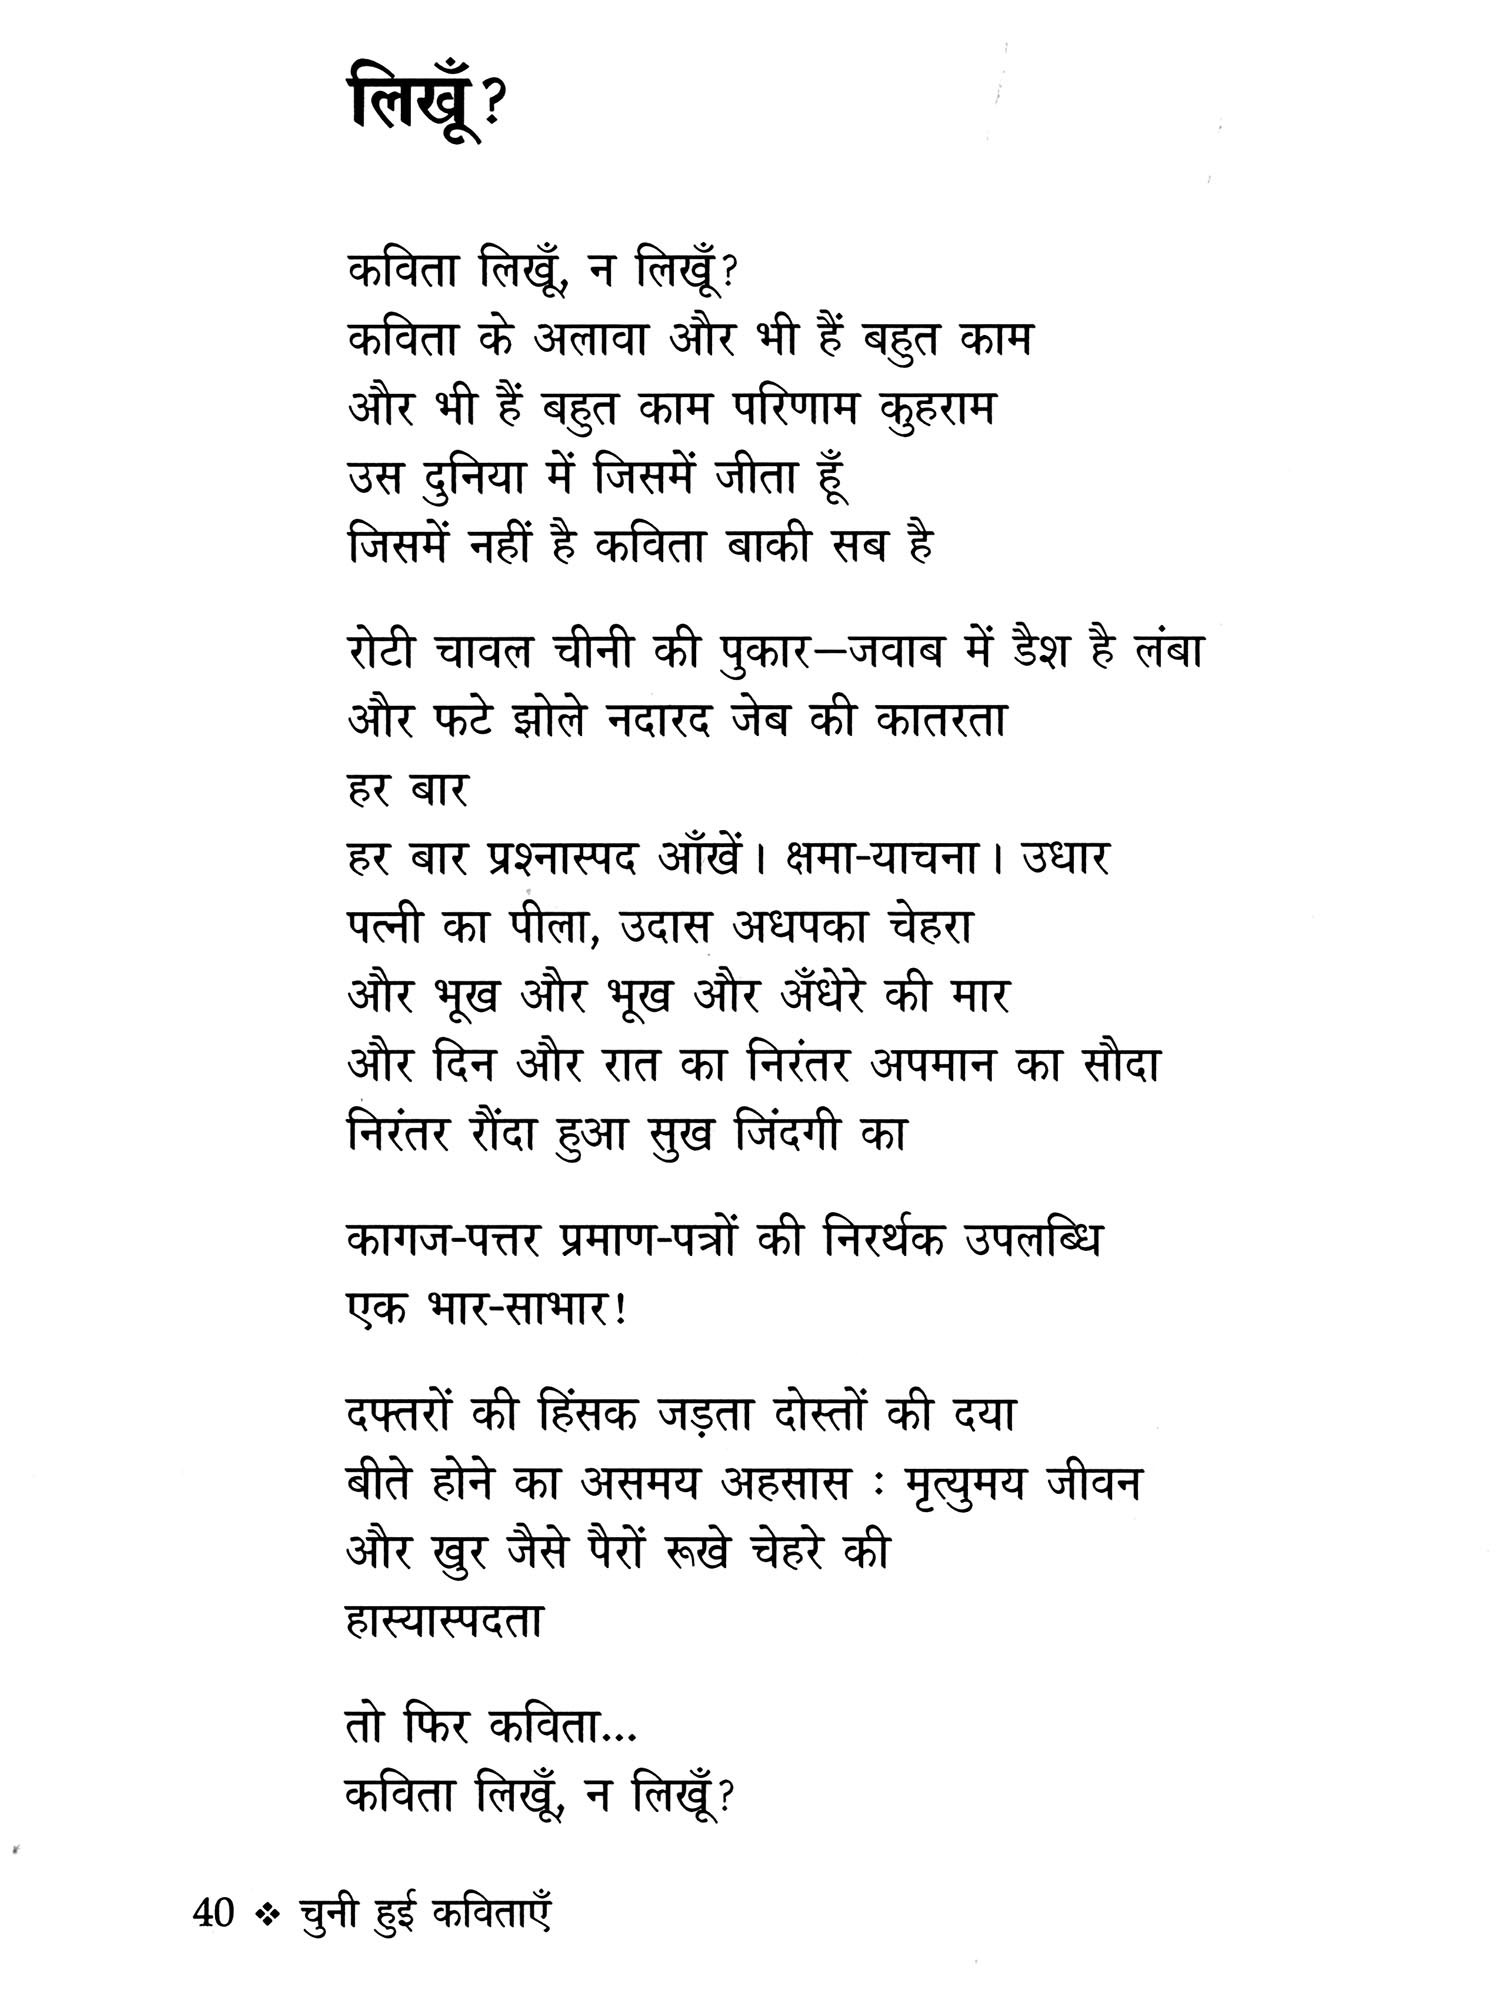 लिखूँ?
कविता लिखूँ, न लिखूँ?
कविता के अलावा और भी हैं बहुत काम
और भी हैं बहुत काम परिणाम कुहराम
उस दुनिया में जिसमें जीता हूँ
जिसमें नहीं है कविता बाकी सब है
रोटी चावल चीनी की पुकार–जवाब में डैश है लंबा
और फटे झोले नदारद जेब की कातरता
हर बार
हर बार प्रश्नास्पद आँखें। क्षमा-याचना। उधार
पत्नी का पीला, उदास अधपका चेहरा
और भूख और भूख और अँधेरे की मार
और दिन और रात का निरंतर अपमान का सौदा
निरंतर रौंदा हुआ सुख जिंदगी का
कागज-पत्तर प्रमाण-पत्रों की निरर्थक उपलब्धि
एक भार-साभार!
दफ्तरों की हिंसक जड़ता दोस्तों की दया
बीते होने का असमय अहसास : मृत्युमय जीवन
और खुर जैसे पैरों रूखे चेहरे की
हास्यास्पदता
तो फिर कविता...
कविता लिखूँ, न लिखूँ?
40 ❖ चुनी हुई कविताएँ